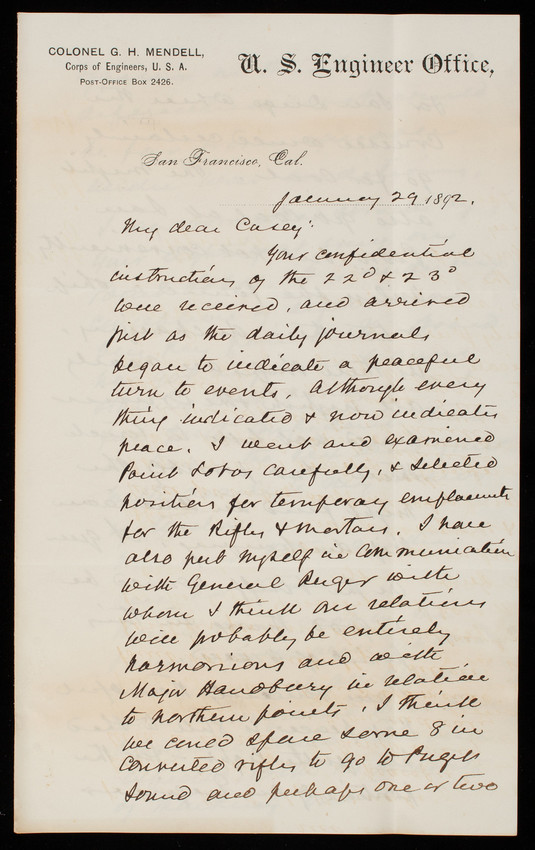 COLONEL G. H. MENDELL,
Corps of Engineers, U. S. A.
POST-OFFICE BOX 2426.
U. S. Engineer Office,
San Francisco, Cal.
January 29 1892.
My dear Casey:
Your confidential
instructions of the 22d & 23d
were received, and arrived
just as the daily journals
began to indicate a peaceful
turn to events. Although every
thing indicated & now indicates
peace, I went and examined
Point Lobos carefully, & selected
positions for temporary emplacements
for the Rifles & Mortars. I have
also put myself in communication
with General Ruger with
whom I think our relations
will probably be entirely
harmonious and with
Major Handbury in relation
to northern points. I think
we could spare some 8 in
converted rifles to go to Puget
Sound and perhaps one or two